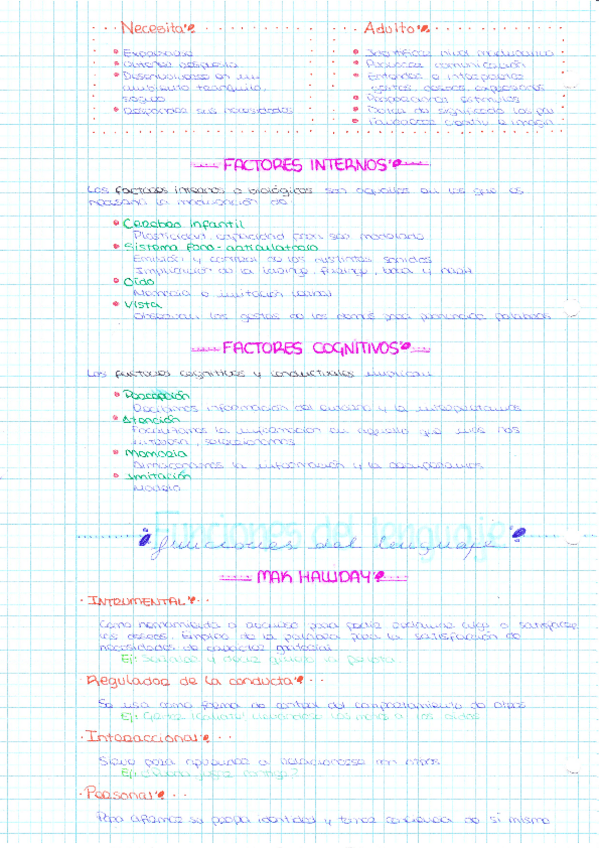 Necesita
Adulto
Experiencia
Obtener respuesta
Desenvolverse en un
ambiente tranquilo,
seguro
Responder sus necesidades
Identificar nivel madurativo
Favorecer comunicación
Entender e interpretar
gestos, deseos, expresiones
Proporcionar estímulos
Dotar de significado
FACTORES INTERNOS
Los factores internos o biológicos son aquellos en los que es
necesario la intervención de:
Cerebro infantil
Plasticidad, capacidad para ser modelado
Sistema fono-articulatorio
Emisión y control de los distintos sonidos
Implicación de la laringe, faringe, boca y nariz
Oído
Memoria e imitación
Vista
Observan los gestos de los demás para pronunciar palabras
FACTORES COGNITIVOS
Los factores cognitivos y conductuales implican:
Percepción
Recibimos información del entorno y la interpretamos
Atención
Focalizamos la información en aquello que más nos
interesa, seleccionamos
Memoria
Almacenamos la información y la recuperamos
Imitación
Modelo
Funciones del lenguaje
MAK HALLIDAY
INTRUMENTAL
Como herramienta o recurso para pedir algo o satisfacer
los deseos. Empleo de la palabra para la satisfacción de
necesidades de carácter material.
Ej:
Regulador de la conducta
Se usa como forma de control del comportamiento de otros
Ej:
Interaccional
Sirve para relacionarse con otros
Ej: ¿ jugar contigo?
Personal
Para afirmar su propia identidad y tomar conciencia de sí mismo